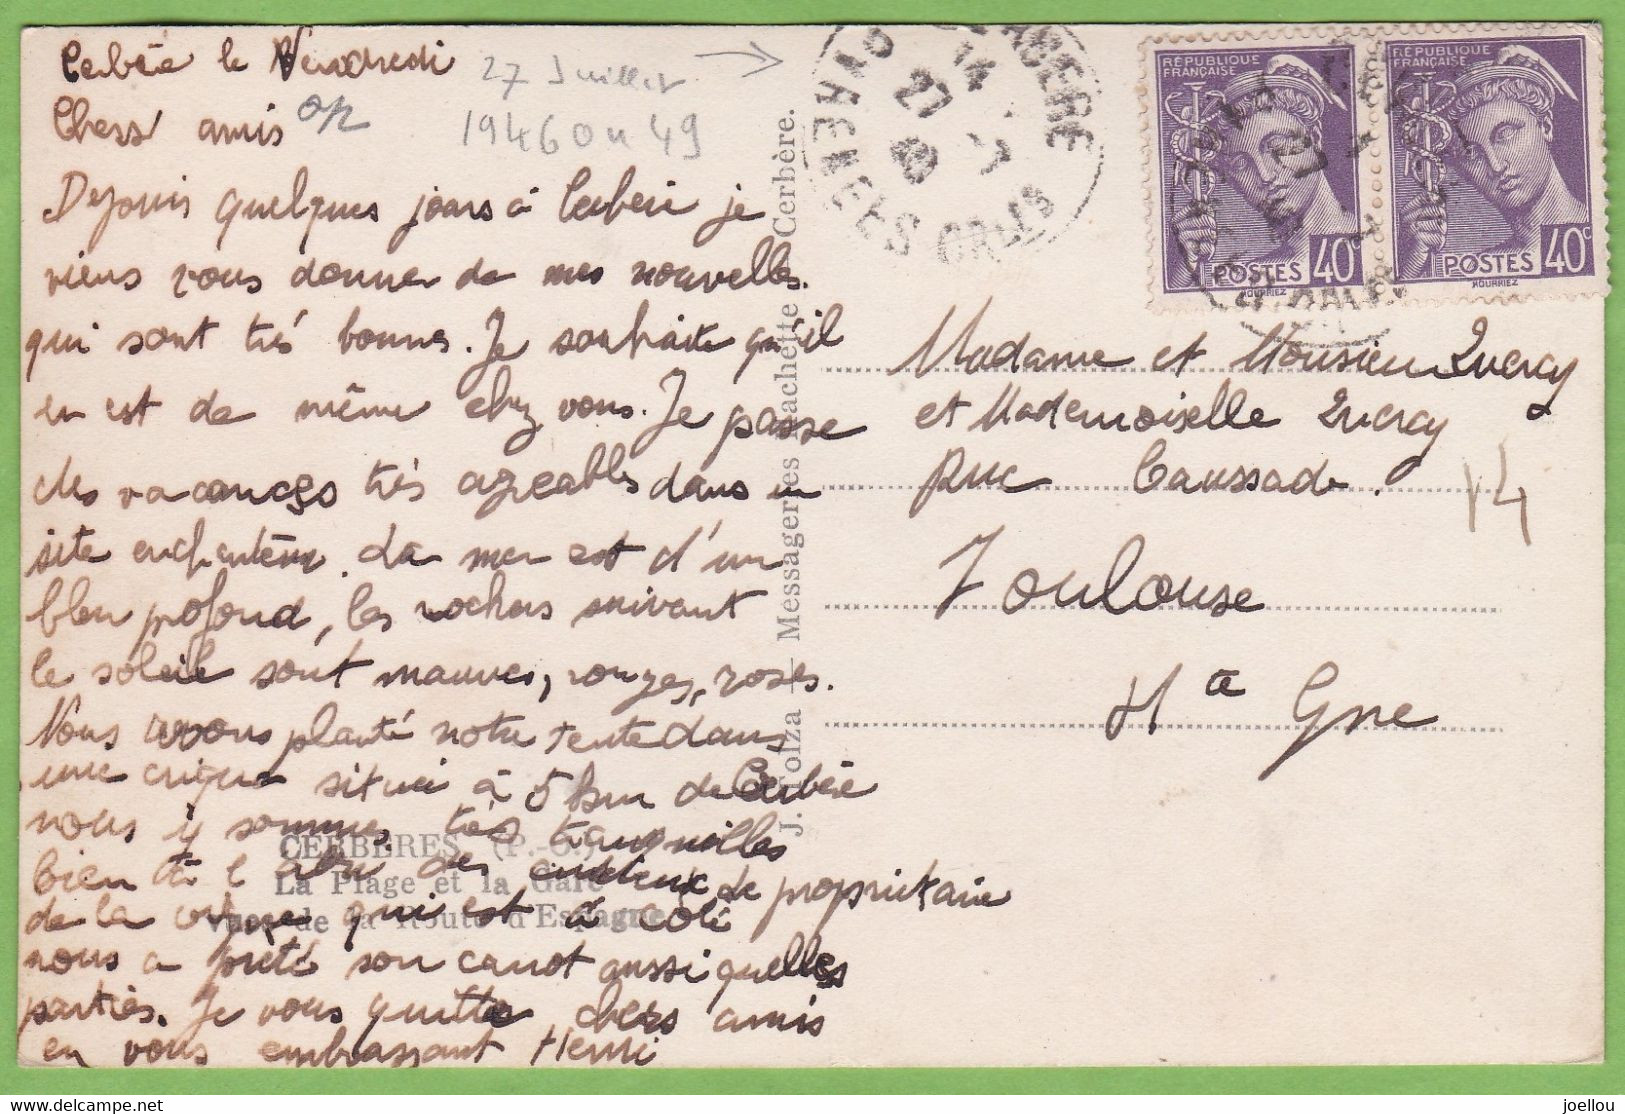 Cerbère le Vendredi
27 Juillet
1946 ou 49
Chers amis
Depuis quelques jours à Cerbère je
viens vous donner de mes nouvelles.
qui sont très bonnes. Je souhaite qu'il
en est de même chez vous. Je passe
des vacances très agréables dans un
site enchanteur. La mer est d'un
bleu profond, les rochers suivant
le soleil sont mauves, rouges, roses.
Nous avons planté notre tente dans
une crique située à 5 km de Cerbère
nous y sommes très tranquilles
bien à l'abri des le propriétaire
de la qui est à côté
nous a prêté son canot aussi quelles
parties. Je vous quitte chers amis
en vous embrassant Henri
CERBÈRES (P.-O.)
La Plage et la Gare
Vue de la Route d'Espagne
J. Folza - Messageries Hachette Cerbère.
CERBERE
PYRENEES ORLES
14
27 -7
RÉPUBLIQUE
FRANÇAISE
POSTES 40c
HOURRIEZ
RÉPUBLIQUE
FRANÇAISE
POSTES 40c
HOURRIEZ
Madame et Monsieur Quercy
et Mademoiselle Quercy
Rue Caussade.
14
Toulouse
Hte Gne
joellou